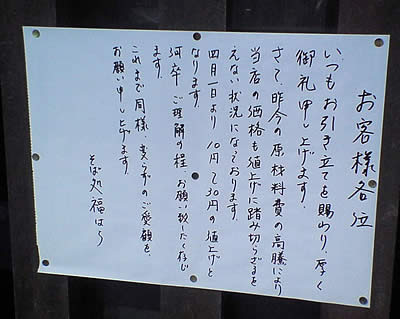 お客様各位
いつもお引き立てを賜わり、厚く
御礼申し上げます。
さて昨今の原材料費の高騰により
当店の価格も値上げに踏み切らざるを
えない状況になっております。
四月一日より10円〜30円の値上げと
なります。
何卒ご理解の程お願い致したく存じ
ます。
これまで同様変らぬのご愛顧を、
お願い申し上げます。
そば処福はら